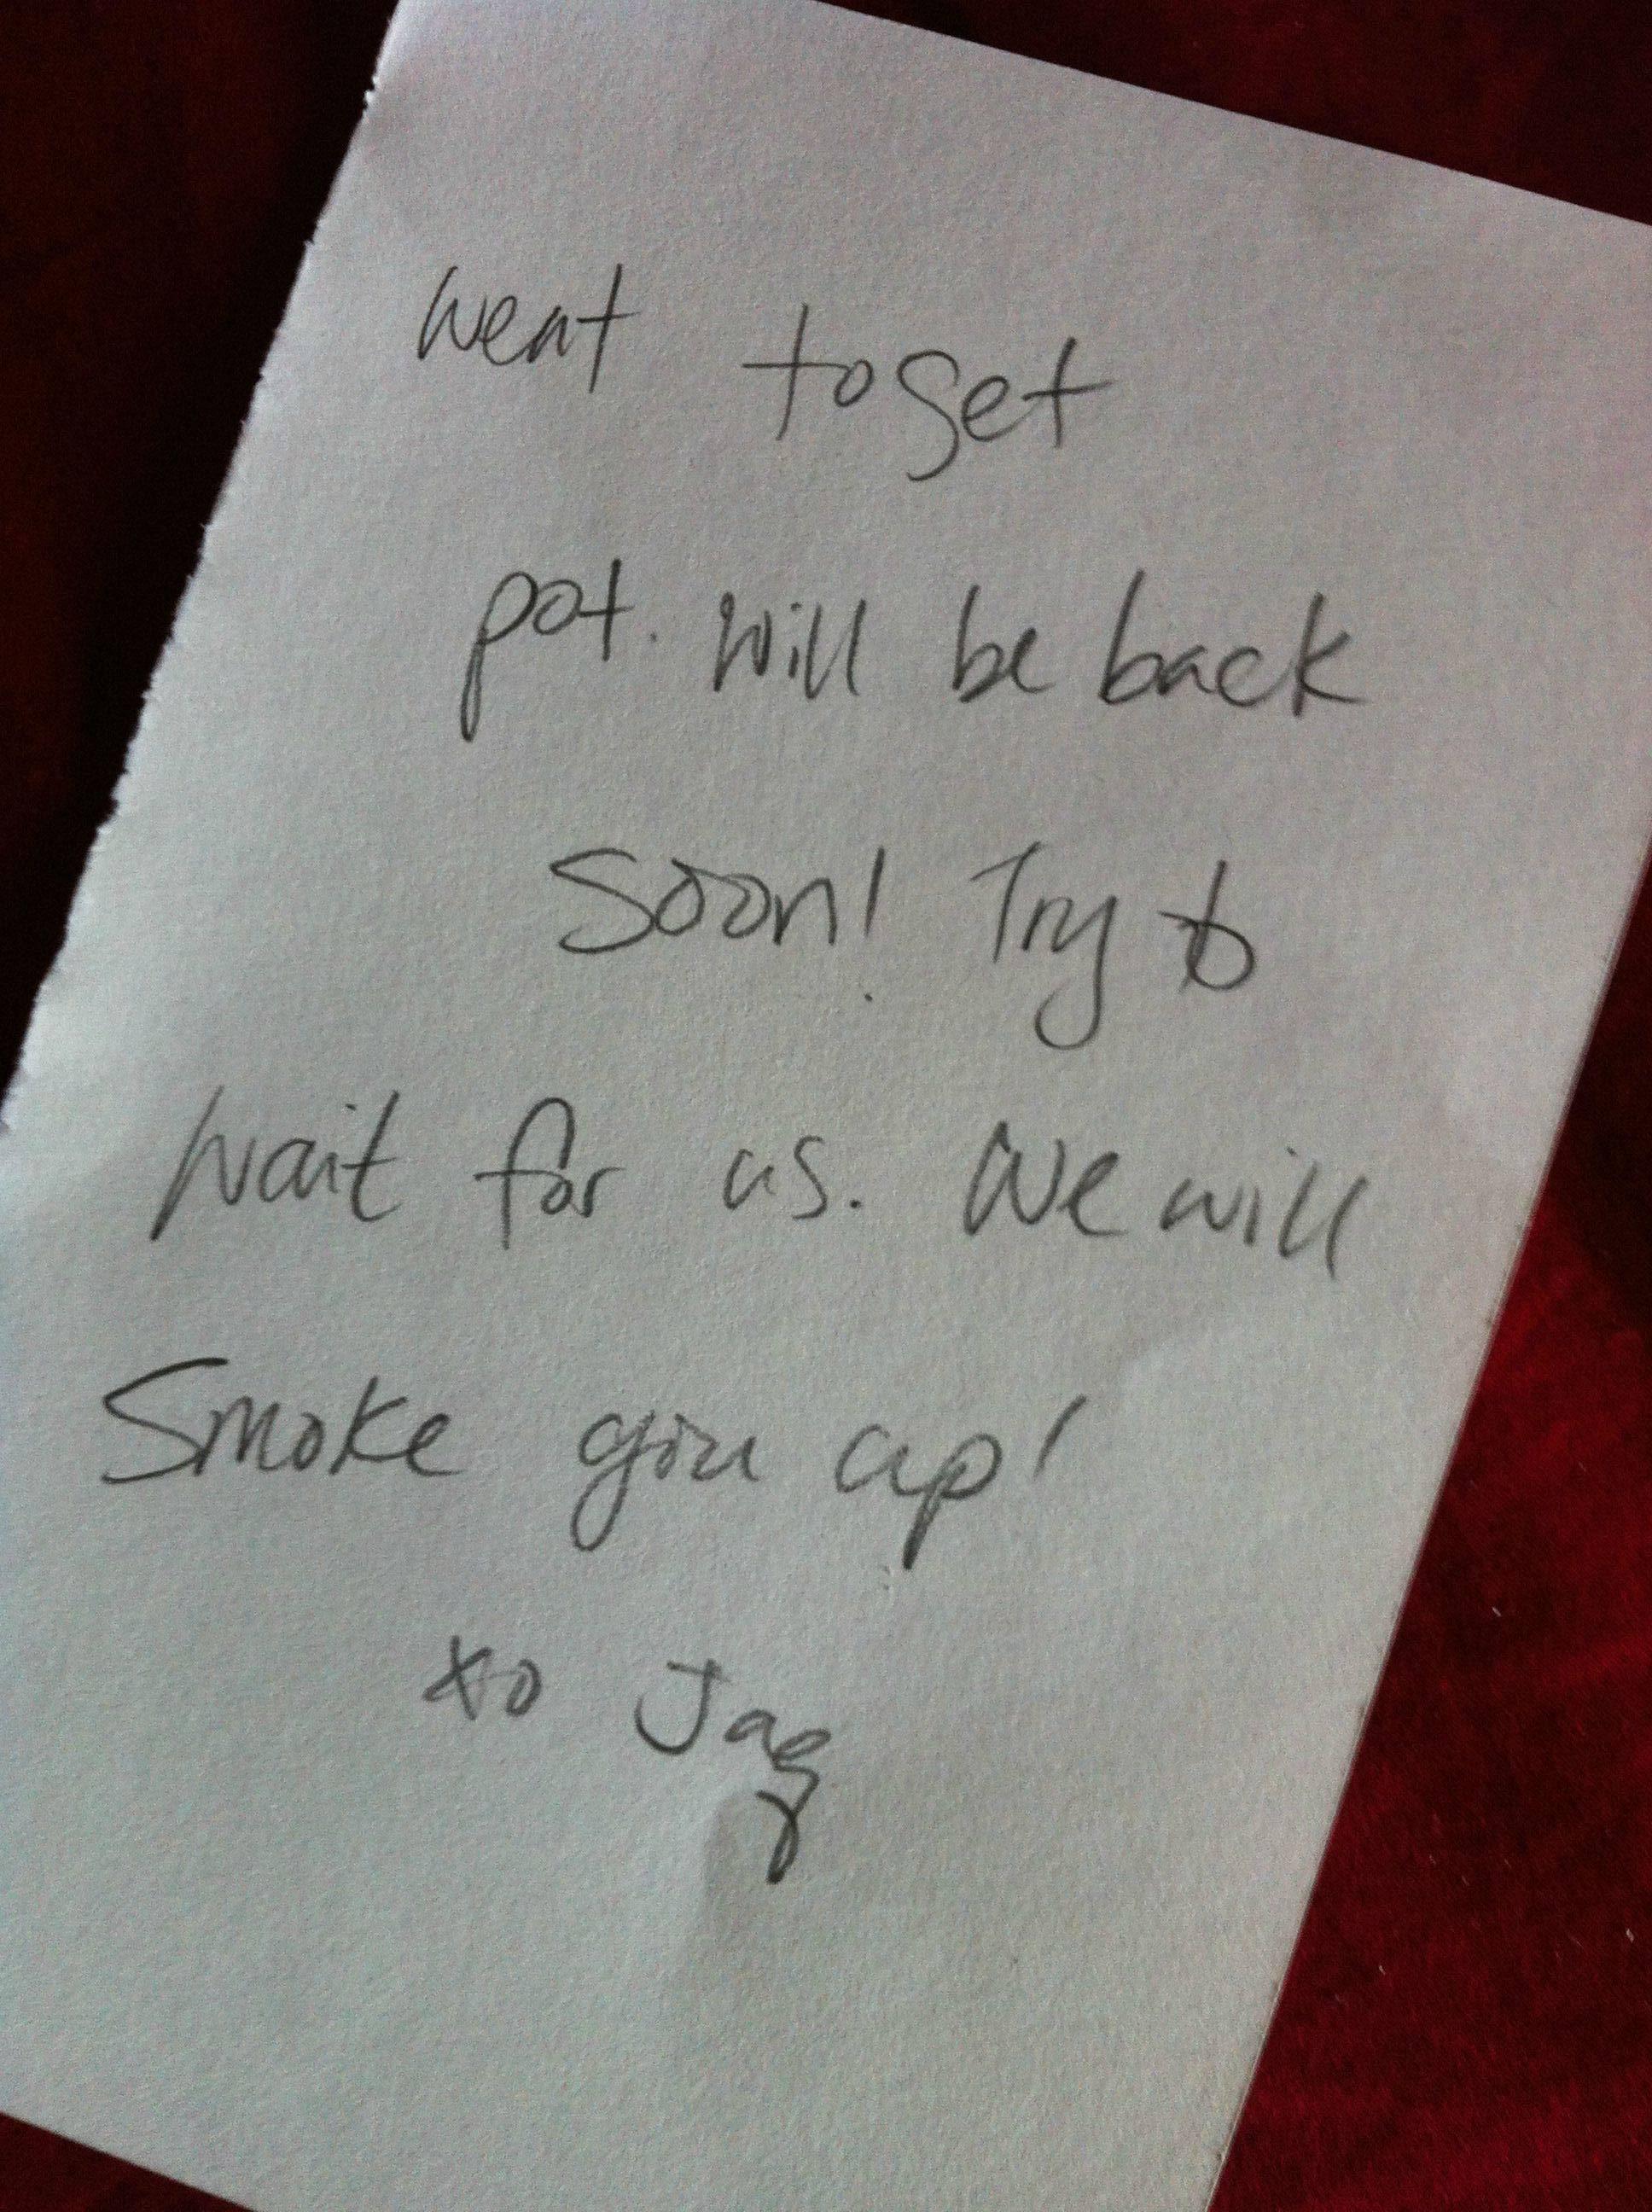 went to get
pot. will be back
soon! Try to
wait for us. We will
smoke you up!
xo Jag